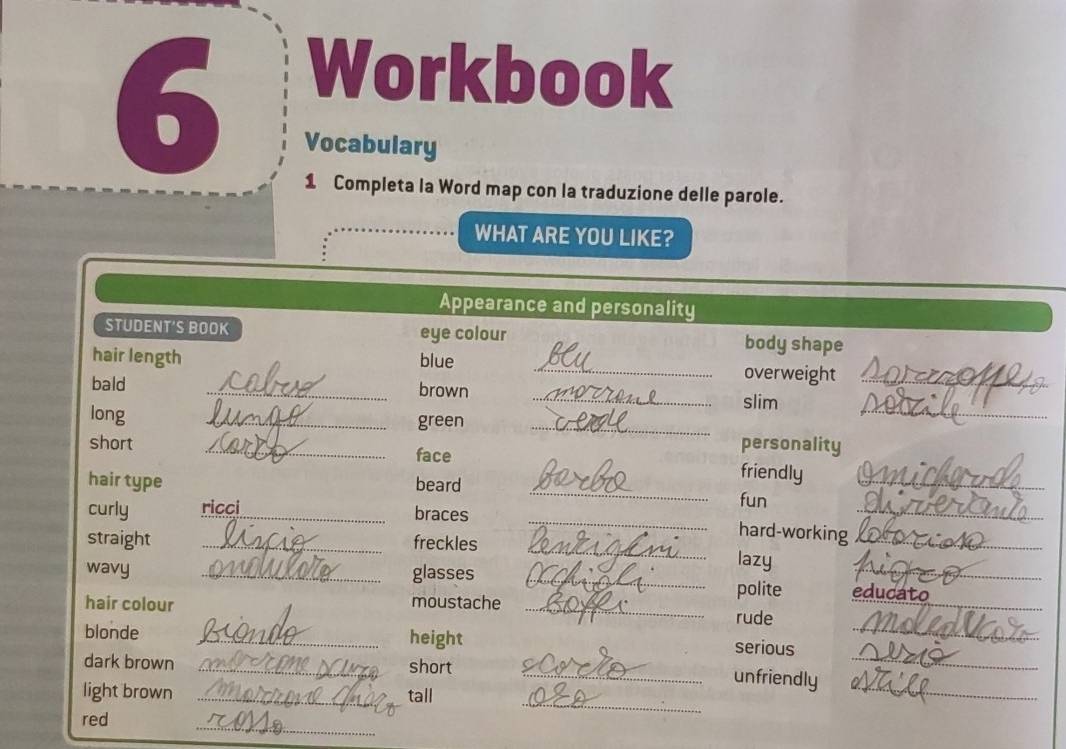 6
Workbook
Vocabulary
1 Completa la Word map con la traduzione delle parole.
WHAT ARE YOU LIKE?
Appearance and personality
STUDENT'S BOOK
hair length
bald calvo
long lungo
short corto
hair type
curly ricci
straight liscio
wavy ondulato
hair colour
blonde biondo
dark brown marrone scuro
light brown marrone chiaro
red rosso
eye colour
blue blu
brown morrone
green verde
face
beard barba
braces
freckles lentiglini
glasses occhiali
moustache baffi
height
short
tall
body shape
overweight
slim
personality
friendly amichevole
fun divertante
hard-working
lazy pigro
polite educato
rude maleducato
serious serio
unfriendly